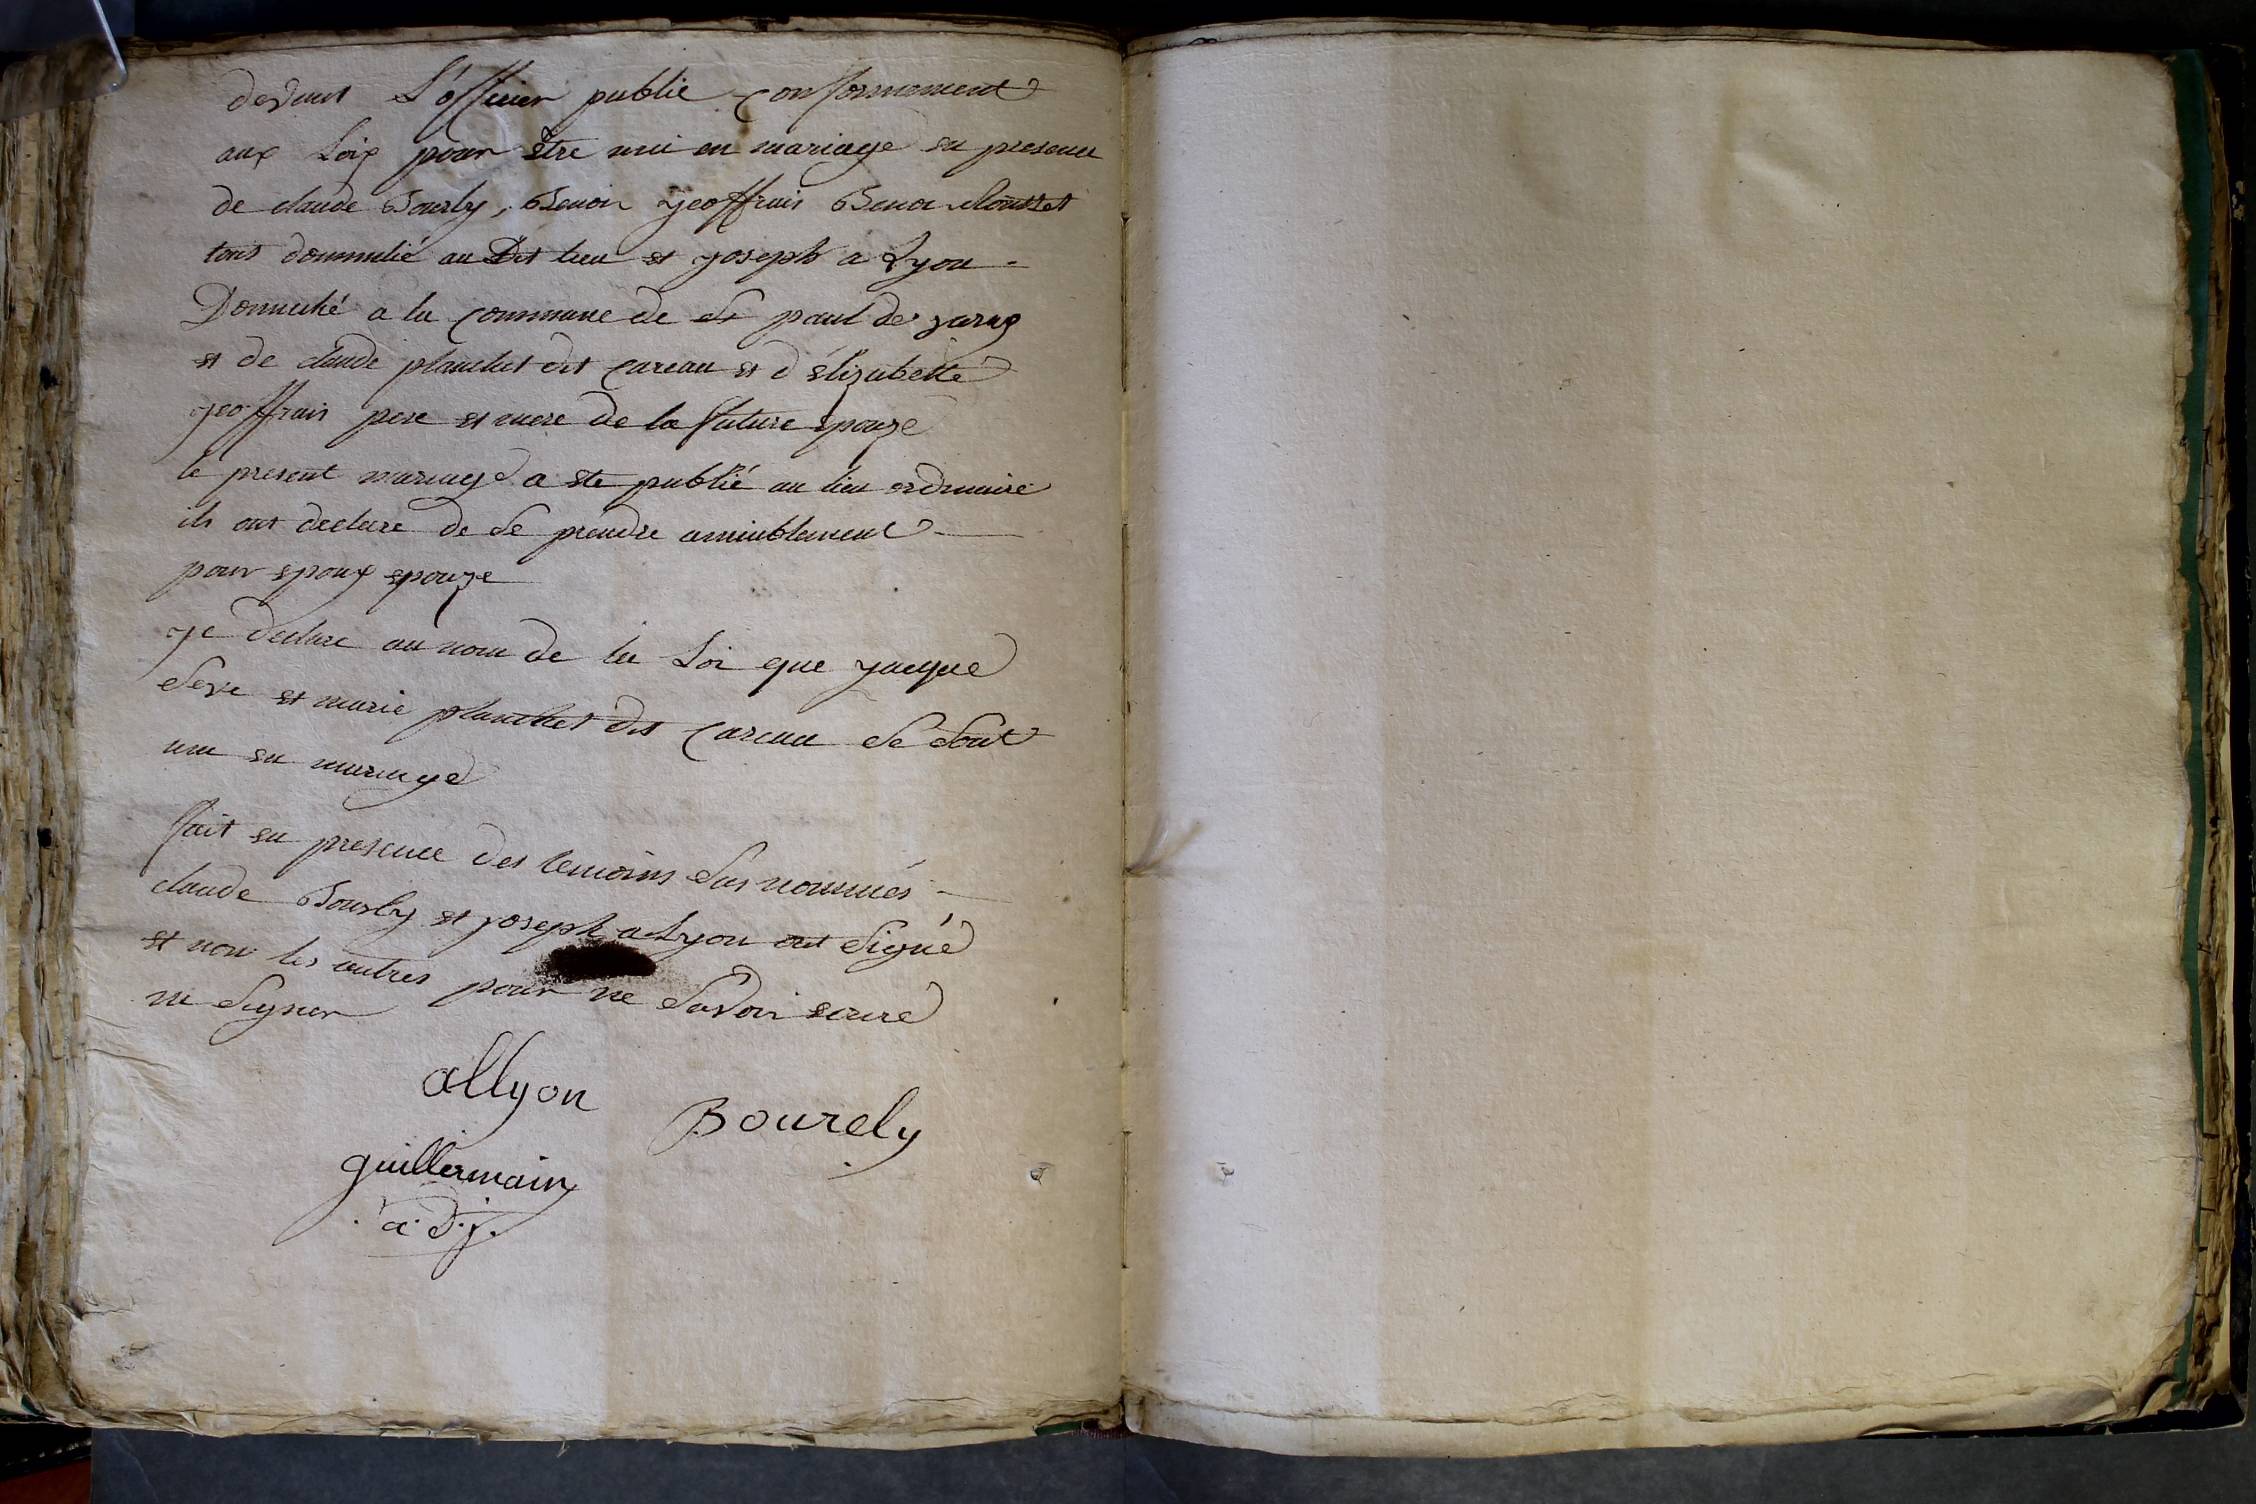 devant L'officier public conformement
aux Loix pour être uni en mariage en presence
de claude Bourly, Benoin yeoffrais Benoi clousset
tous dommilié au Dit lieu et yoseph a Lyon -
Domicilié a la commune de St paul de yarax
et de claude planchet dit Careau et d'élizabette
yeoffrais pere et mere de la future Epouze
le present mariage a ete publié au lieu ordinaire
ils ont declare de se prendre amiablement
pour epoux epouze
ye declare au nom de la Loi que yacque
Seve et marie planchet dit Careau Se Sont
uni en mariage
fait en presence des temoins Sus nommés -
claude Bourly et yoseph a Lyon ont Signé
et non les autres pour ne Savoir ecrire
ni Signer
allyon
Bourely
guillermain
a. d. j.